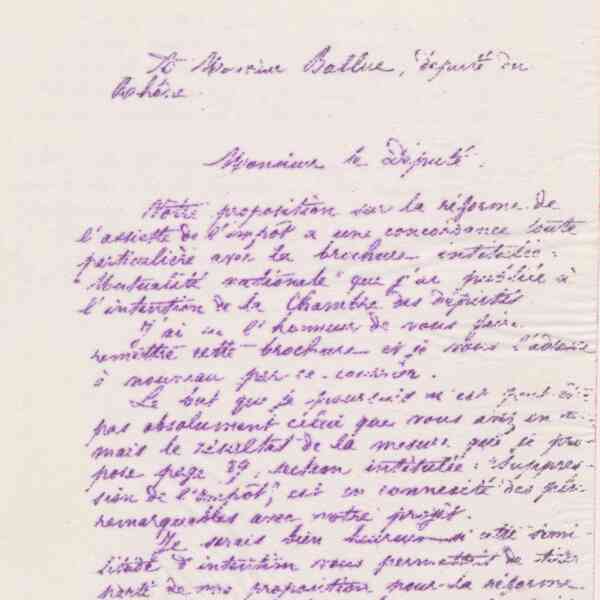 A Monsieur Ballue, député du
Rhône.
Monsieur le Député.
Votre proposition sur la réforme de
l'assiette de l'impôt a une concordance toute
particulière avec la brochure intitulée:
"Mutualité nationale" que j'ai publiée à
l'intention de la Chambre des députés
J'ai eu l'honneur de vous faire
remettre cette brochure et je vous l'adresse
à nouveau par ce courrier.
Le but que je poursuis n'est peut-être
pas absolument celui que vous avez en
mais le résultat de la mesure que je pro-
pose page 39, section intitulée: "Suppres-
sion de l'impôt", est en connexité des plus
remarquables avec votre projet.
Je serais bien heureux si cette simi-
litude d'intention vous permettait de tirer
parti de ma proposition pour la réforme